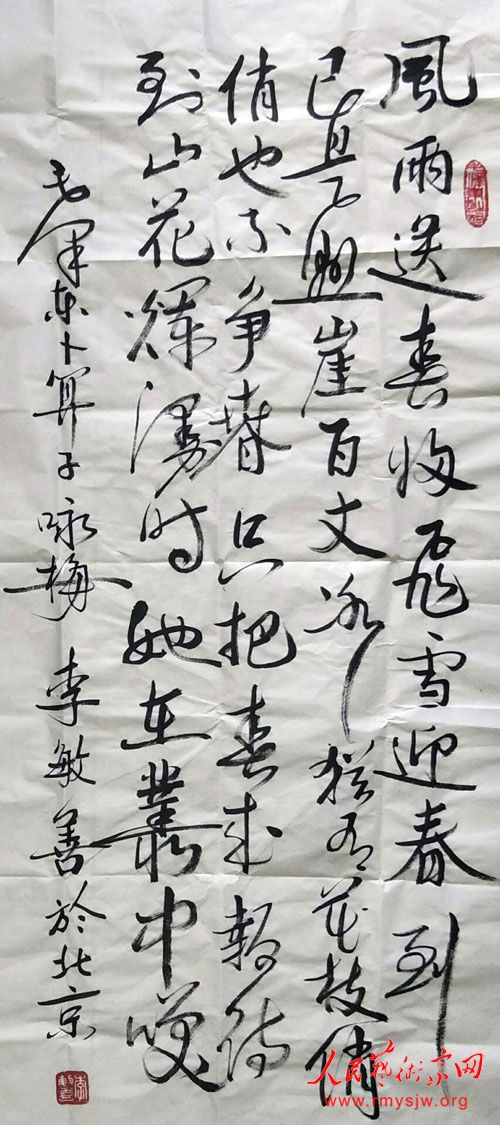 風雨送春归飛雪迎春到
已是懸崖百丈冰猶有花枝俏
俏也不争春只把春来報待
到山花爛漫时她在叢中咲
毛澤东卜算子咏梅 李敏善於北京
李敏善
人民藝術家网
www.rmysjw.org